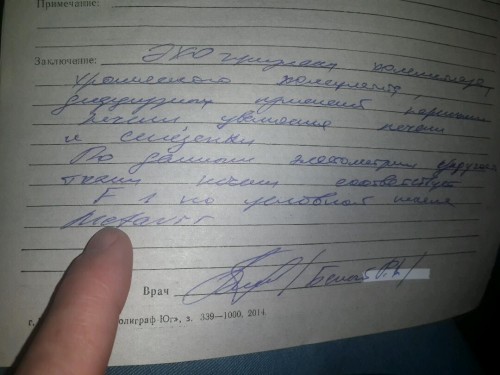 Примечание:
Заключение: ЭХО признаки
хронического
диффузных изменений паренхимы
печени увеличения печени
и селезенки
По данным эластометрии
ткани печени соответствует
F 1 по условной шкале
Metavir
Врач
г. «Полиграф-Юг», з. 339—1000, 2014